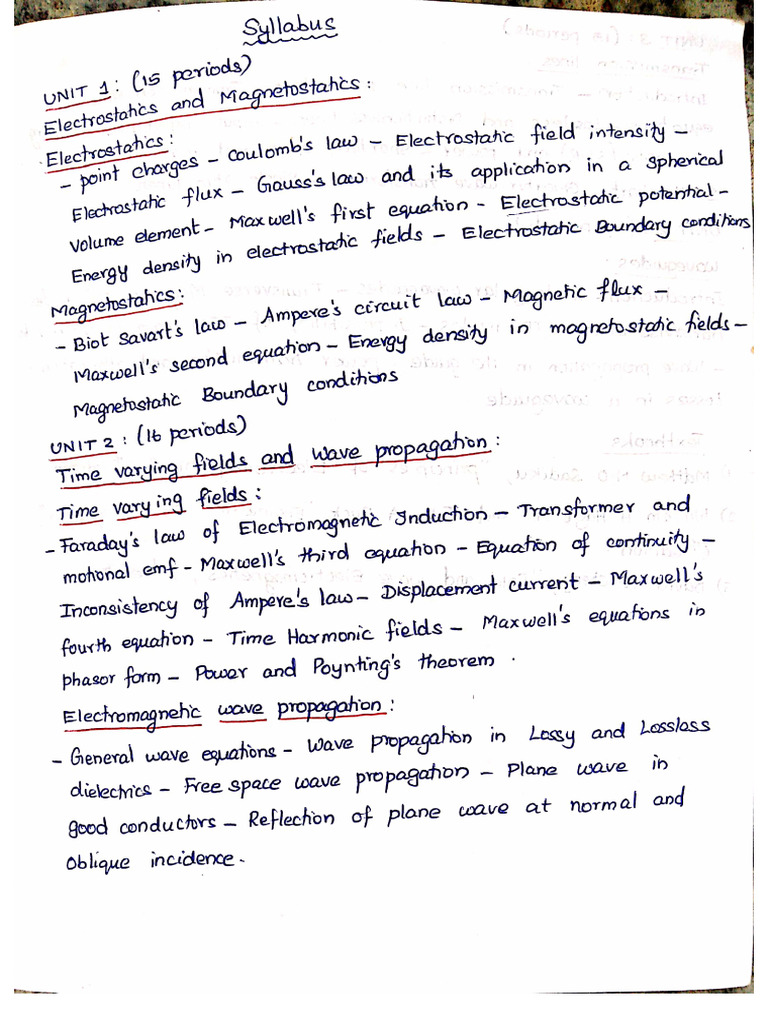 Syllabus
UNIT 1: (15 periods)
Electrostatics and Magnetostatics:
Electrostatics:
- point charges - Coulomb's law - Electrostatic field intensity -
Electrostatic flux - Gauss's law and its application in a spherical
volume element - Maxwell's first equation - Electrostatic potential -
Energy density in electrostatic fields - Electrostatic Boundary conditions
Magnetostatics:
- Biot Savart's law - Ampere's circuit law - Magnetic flux -
Maxwell's second equation - Energy density in magnetostatic fields -
Magnetostatic Boundary conditions
UNIT 2: (16 periods)
Time varying fields and wave propagation:
Time varying fields:
- Faraday's law of Electromagnetic Induction - Transformer and
motional emf - Maxwell's third equation - Equation of continuity -
Inconsistency of Ampere's law - Displacement current - Maxwell's
fourth equation - Time Harmonic fields - Maxwell's equations in
phasor form - Power and Poynting's theorem.
Electromagnetic wave propagation:
- General wave equations - Wave propagation in Lossy and Lossless
dielectrics - Free space wave propagation - Plane wave in
good conductors - Reflection of plane wave at normal and
oblique incidence.